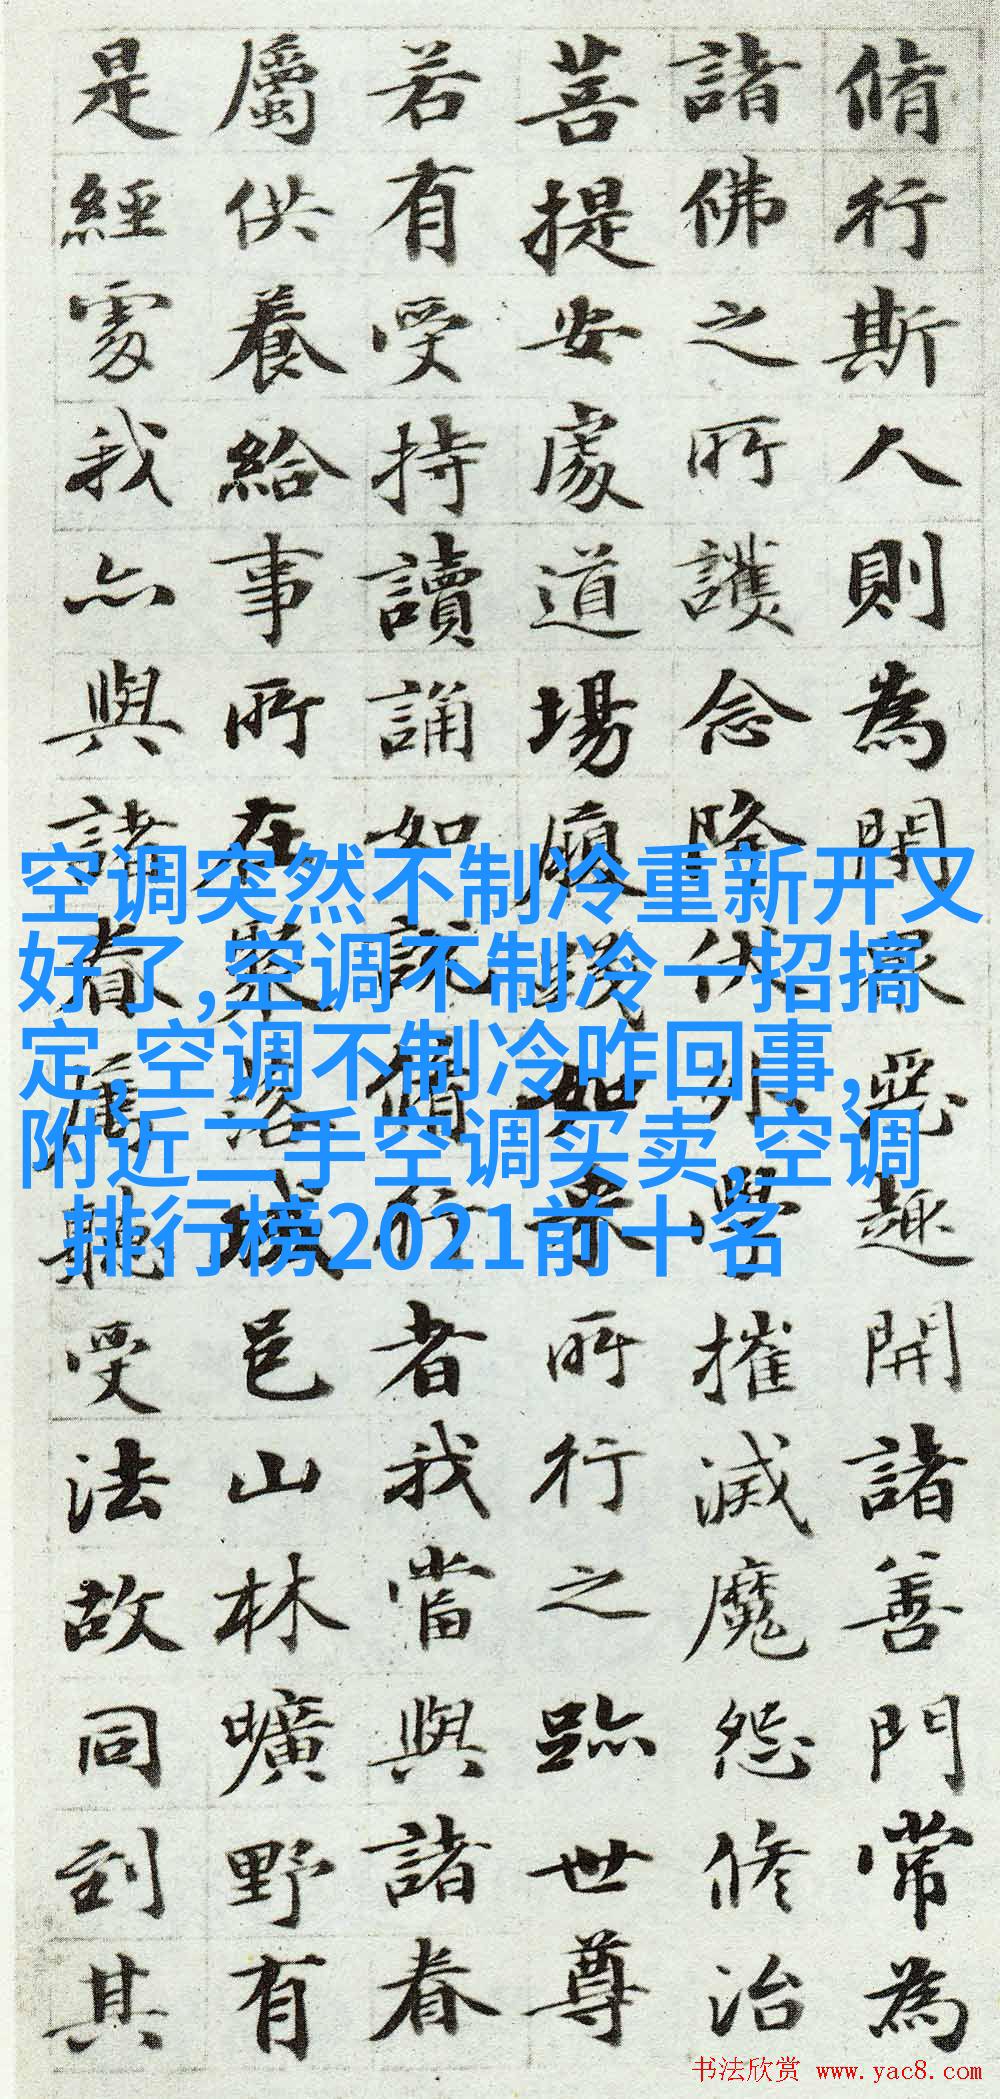 脩行斯人則為閉眾惡趣開諸善門常為
諸佛之所護念降伏外學摧滅魔怨修治
菩提安處道場履踐如來所行之跡世尊
若有受持讀誦如說脩行者我當與諸眷
屬供養給事所在聚落城邑山林曠野有
是經處我亦與諸眷屬聽受法故同到其
空调突然不制冷重新开又
好了,空调不制冷一招搞
定,空调不制冷咋回事,
附近二手空调买卖,空调
排行榜2021前十名
书法欣赏 www.yac8.com